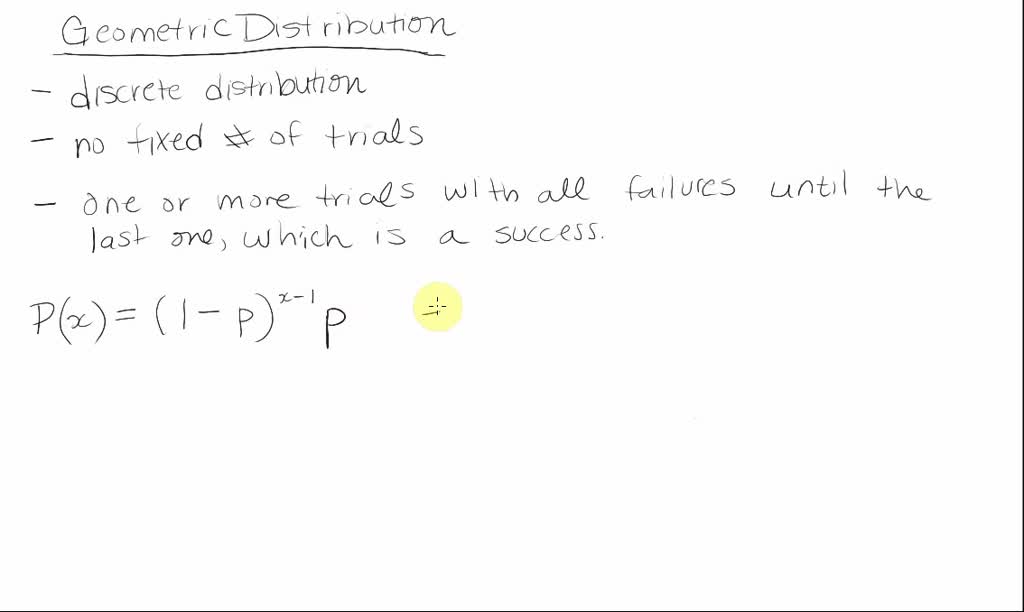 Geometric Distribution
- discrete distribution
- no fixed # of trials
- one or more trials with all failures until the
last one, which is a success.
P(x) = (1 - p)^{x-1} p =